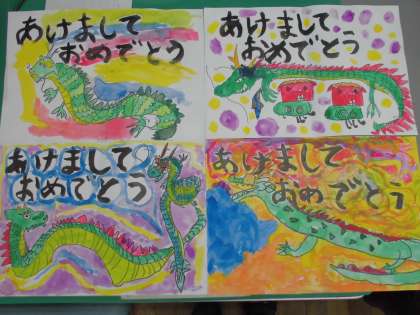 あけまして
おめでとう
あけまして
おめでとう
あけまして
おめでとう
あけまして
おめでとう